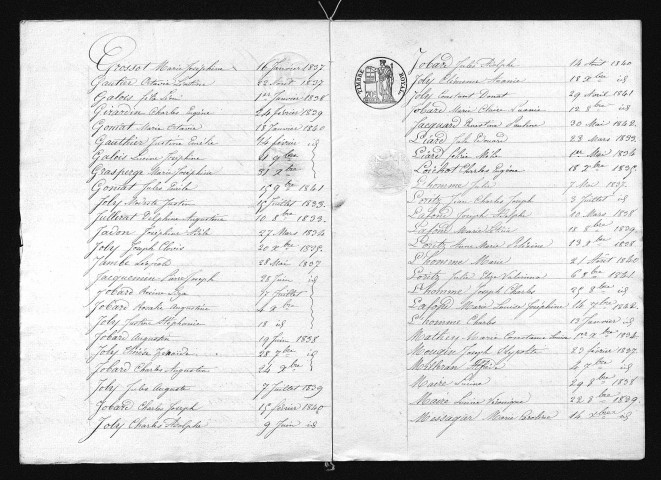 Grossot Marie Joséphine 16 Janvier 1837
Gautier Octavie Justine 22 Août 1837
Galois Julie 1er Janvier 1838
Girardin Charles Eugène 24 février 1839
Goniat Marie Octavie 18 Janvier 1840
Gauthier Justine Emélie février id
Galois Louise Joséphine 21 9bre
Grasperge Marie Joséphine 31 Xbre
Goniat Jules Emile 15 9bre 1841
Joly Modeste Justin 15 Juillet 1833
Jullerat Delphine Augustine 10 8bre 1833
Jadon Joséphine 27 Mars 1834
Joly Joseph Clovis 20 Xbre 1835
Jambe Léopold 28 Mai 1837
Jacquemin Pierre Joseph 28 Juin id
Jobard Juillet
Jobard Rosalie Augustine 4 Xbre
Joly Justin Stéphanie 18 id
Jobard Augustin 19 Juin 1838
Joly 28 7bre
Jobard Charles Augustin 24 9bre
Joly Jules Auguste 7 Juillet 1839
Jobard Charles Joseph 15 février 1840
Joly Charles Adolphe 9 Juin id
TIMBRE ROYAL
Jobard Jules Adolphe 14 Août 1840
Joly Clémence 18 Xbre id
Joly Constant Donat 29 Avril 1841
Jobard Marie Claire 12 8bre id
Jacquard Ernestine Pauline 30 Mai 1842
Liard Jules Edouard 23 Mars 1833
Liard 1er Mai 1834
Loichot Charles Eugène 18 Xbre 1835
L'homme Julie 7 Mai 1837
Loritz Jean Charles Joseph 3 Juillet id
Lafond Joseph Adolphe 10 Mars 1838
Lafond Marie 18 8bre 1839
Loritz Anne Marie 13 1838
L'homme Marie 21 Août 1840
Loritz Julie 6 8bre 1841
L'homme Joseph Charles 25 8bre id
Lafond Marie Louise Joséphine 14 7bre 1842
L'homme Charles 13 Janvier id
Mathey Marie Constance 1er 9bre 1834
Mougin Joseph Hypolite 23 février 1837
4 7bre id
Maire 29 8bre 1838
Maire Louise Véronique 22 8bre 1839
Messagar Marie Caroline 14 Xbre id